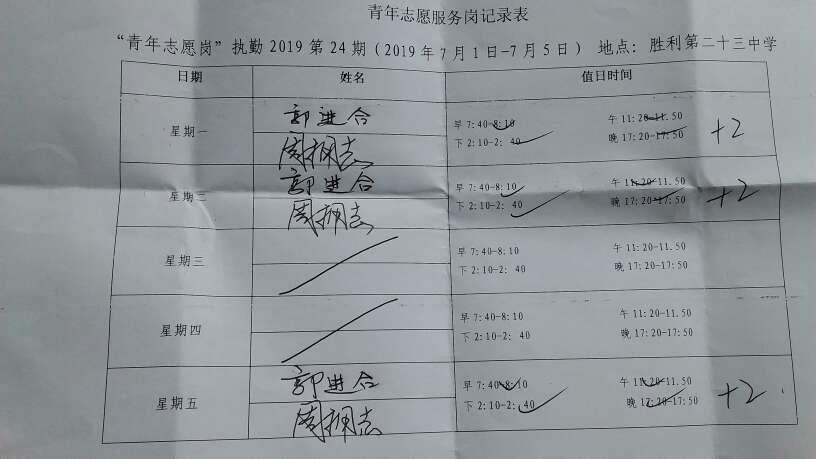 青年志愿服务岗记录表
“青年志愿岗”执勤2019第24期（2019年7月1日-7月5日） 地点：胜利第二十三中学
日期 姓名 值日时间
星期一 郭进合 早7:40-8:10 午11:20-11.50
周拥志 下2:10-2：40 晚17:20-17:50 +2
星期三 郭进合 早7:40-8:10 午11:20-11.50
周拥志 下2:10-2：40 晚17:20-17:50 +2
星期三 早7:40-8:10 午11:20-11.50
下2:10-2：40 晚17:20-17:50
星期四 早7:40-8:10 午11:20-11.50
下2:10-2：40 晚17:20-17:50
星期五 郭进合 早7:40-8:10 午11:20-11.50
周拥志 下2:10-2：40 晚17:20-17:50 +2